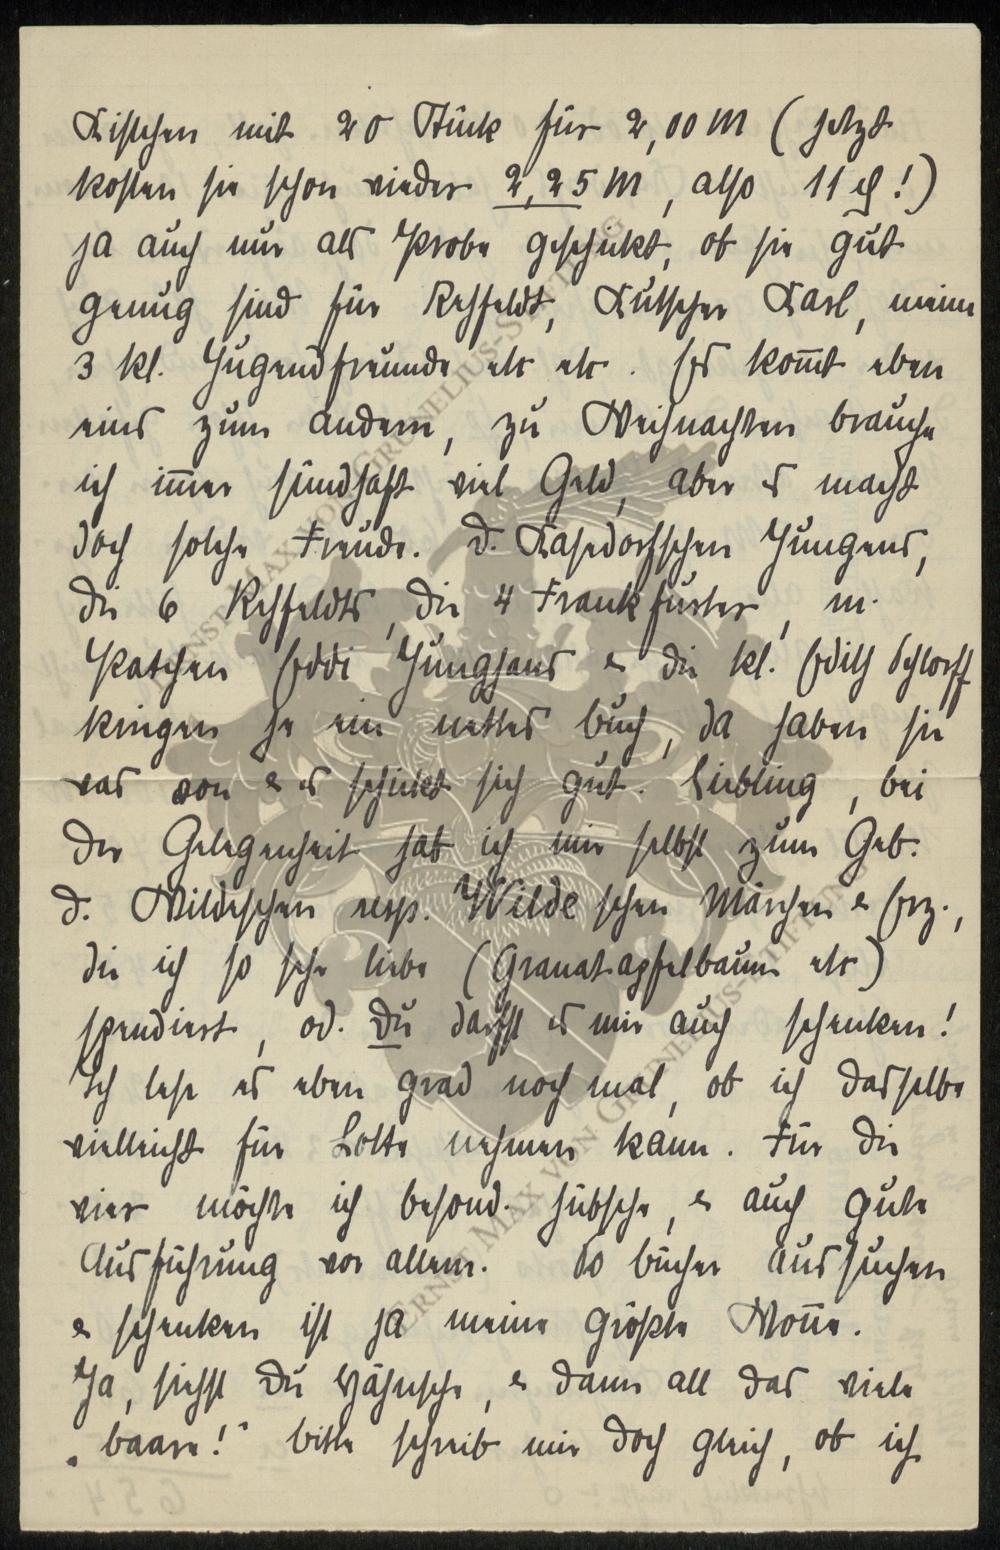 Kistchen mit 20 Stück für 2,00 M (jetzt
kosten sie schon wieder 2,25 M, also 11 ₰!)
ja auch nur als Probe geschickt, ob sie gut
genug sind für Rehfeldt, Kutscher Karl, meine
3 kl. Jugendfreunde etc etc. Es kom̄t eben
eins zum andern, zu Weihnachten brauche
ich im̄er sündhaft viel Geld, aber es macht
doch solche Freude. D. Kasedorfschen Jungens,
die 6 Rehfeldts, die 4 Frankfurter, m.
Patchen Eddi Junghans & die kl. Edith Schlorff
kriegen je ein nettes Buch, da haben sie
was von & es schickt sich gut. Liebling, bei
der Gelegenheit hab ich mir selbst zum Geb.
d. Wildeschen resp. Wilde schen Märchen & Erz.,
die ich so sehr liebe (Granatapfelbaum etc)
spendiert, od. Du darfst es mir auch schenken!
Ich lese es eben grad noch mal, ob ich dasselbe
vielleicht für Lotte nehmen kann. Für die
vier möchte ich besond. hübsche, & auch gute
Ausführung vor allem. So bücher aussuchen
& schenken ist ja meine größte Won̄e.
Ja, siehst Du Hähnsche, & dann all das viele
„baare!" bitte schreib mir doch gleich, ob ich
ERNST MAX VON GRUNELIUS-STIFTUNG
ERNST MAX VON GRUNELIUS-STIFTUNG